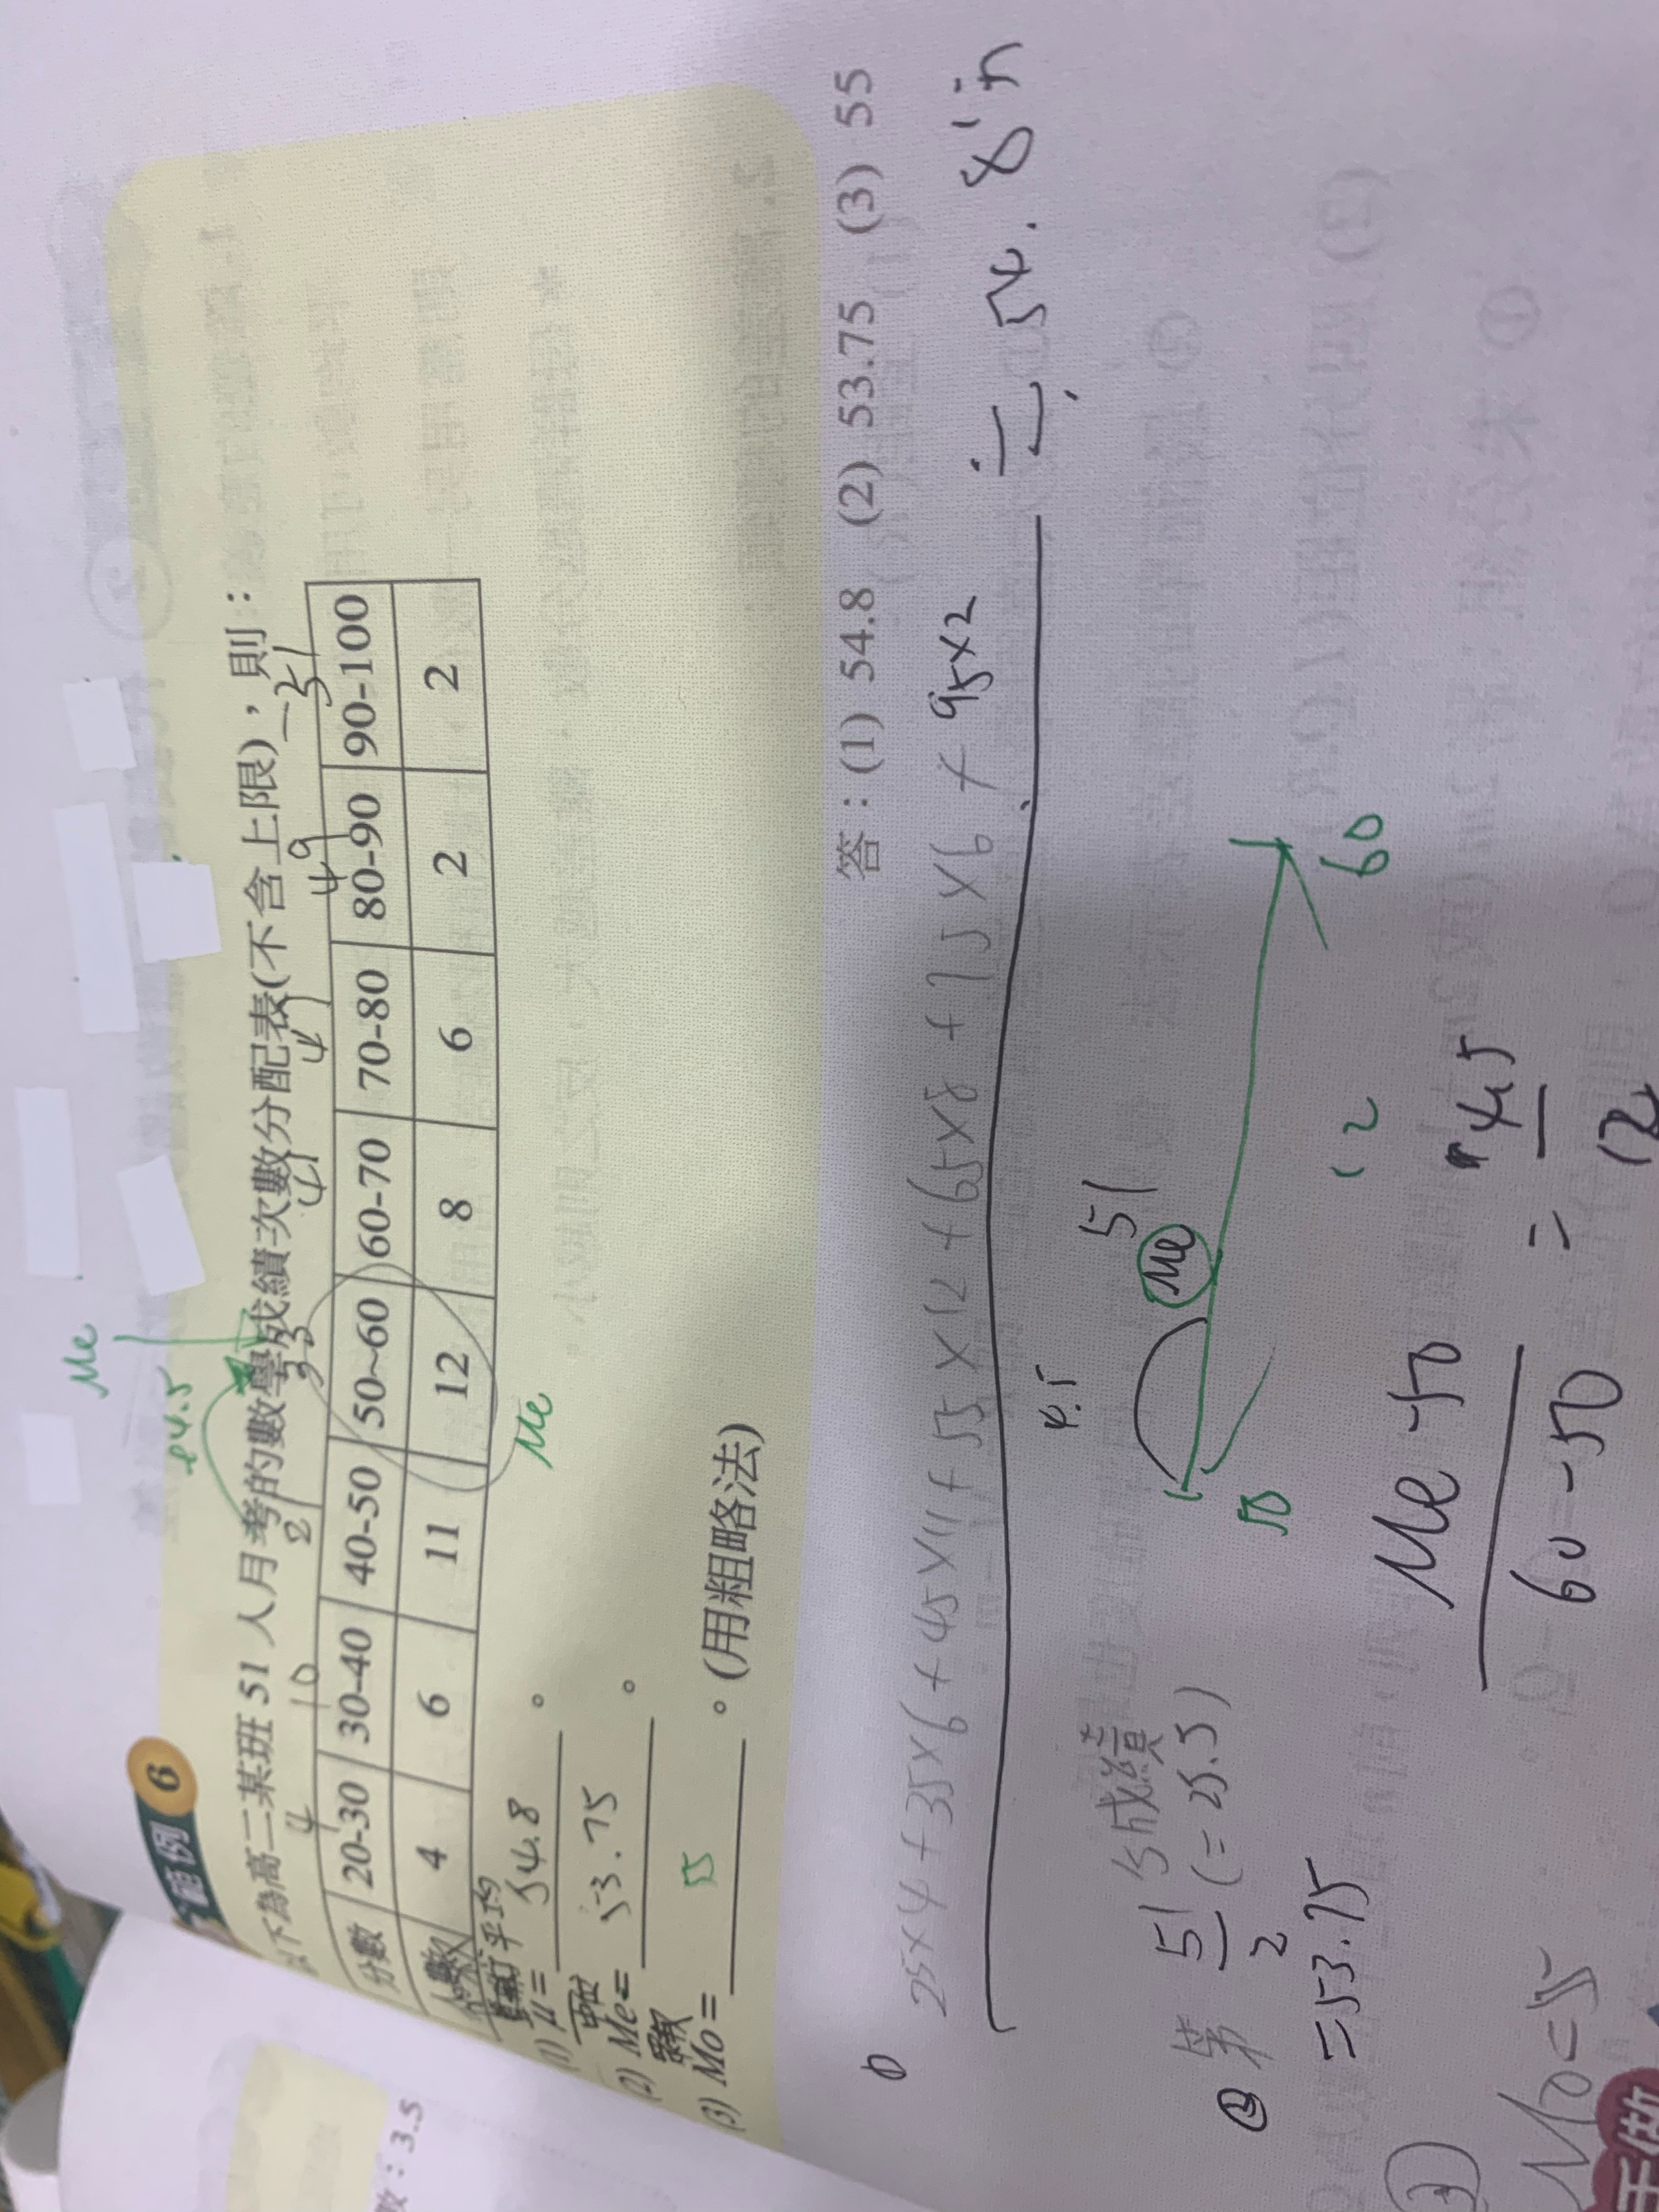 範例 6
以下為高二某班 51 人月考的數學成績次數分配表(不含上限)，則：
4 10 21 33 41 47 49 51
分數 20-30 30-40 40-50 50~60 60-70 70-80 80-90 90-100
人數 4 6 11 12 8 6 2 2
Me
Me
算術平均
(1) μ = 54.8 。
中位
(2) Me = 53.75 。
眾數
(3) Mo = 55 。(用粗略法)
答：(1) 54.8 (2) 53.75 (3) 55
25×4+35×6+45×11+55×12+65×8+75×6+95×2
≒ 54.8
51
4.5
Me
50
60
12
② 第 51/2 (=25.5)
成績
Me-50 / 60-50 = 4.5 / 12
=53.75
Mo=55
：3.5